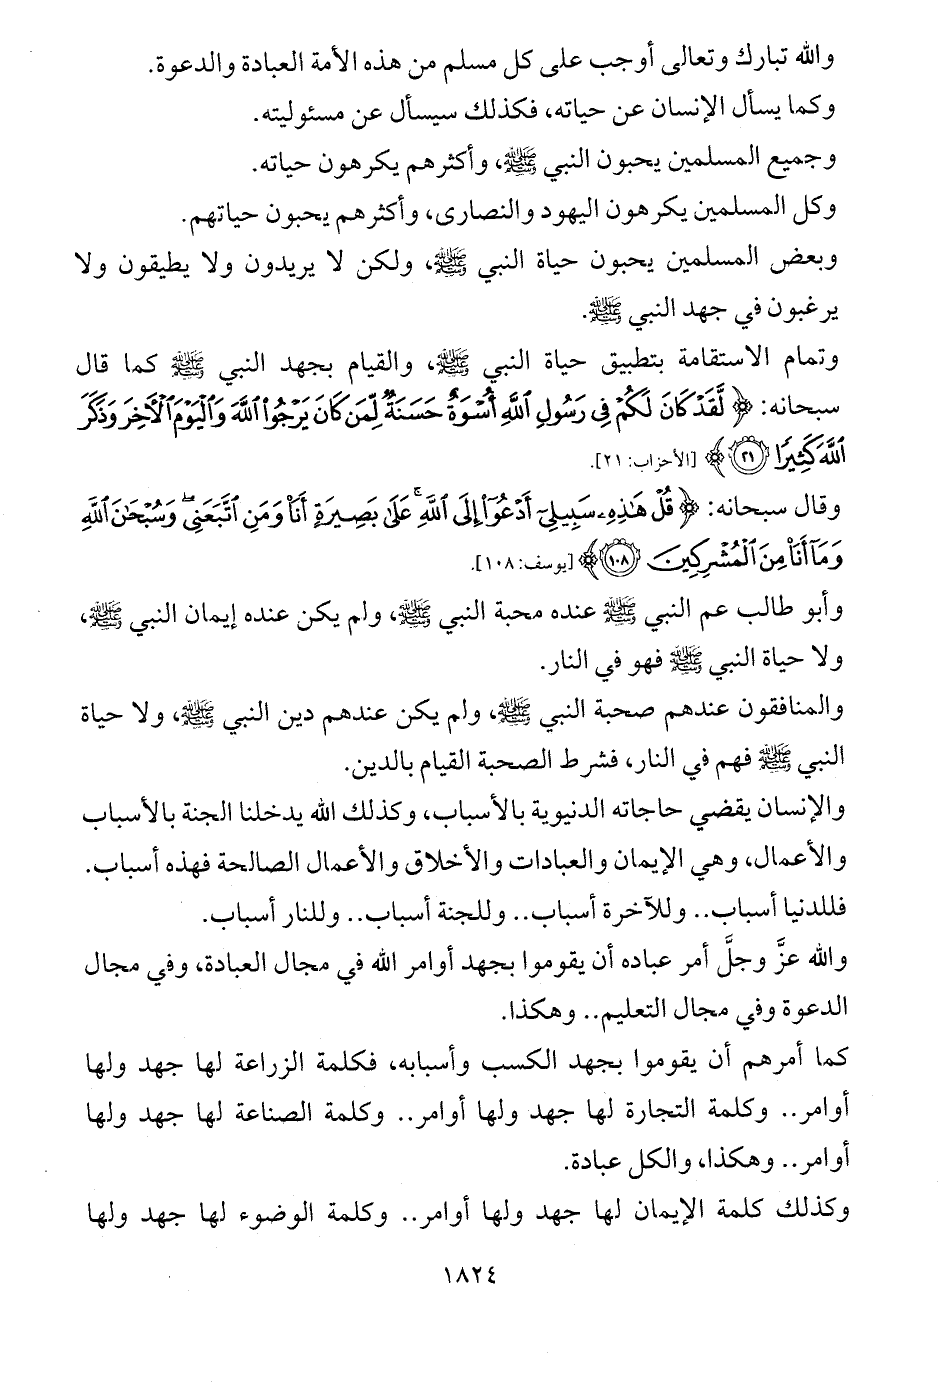 والله تبارك وتعالى أوجب على كل مسلم من هذه الأمة العبادة والدعوة.
وكما يسأل الإنسان عن حياته، فكذلك سيسأل عن مسئوليته.
وجميع المسلمين يحبون النبي ﷺ، وأكثرهم يكرهون حياته.
وكل المسلمين يكرهون اليهود والنصارى، وأكثرهم يحبون حياتهم.
وبعض المسلمين يحبون حياة النبي ﷺ، ولكن لا يريدون ولا يطيقون ولا
يرغبون في جهد النبي ﷺ.
وتمام الاستقامة بتطبيق حياة النبي ﷺ، والقيام بجهد النبي ﷺ كما قال
سبحانه: ﴿ لَّقَدْ كَانَ لَكُمْ فِي رَسُولِ ٱللَّهِ أُسْوَةٌ حَسَنَةٌ لِّمَن كَانَ يَرْجُوا۟ ٱللَّهَ وَٱلْيَوْمَ ٱلْـَٔاخِرَ وَذَكَرَ
ٱللَّهَ كَثِيرًا ٢١ ﴾ [الأحزاب: ٢١].
وقال سبحانه: ﴿ قُلْ هَـٰذِهِۦ سَبِيلِىٓ أَدْعُوٓا۟ إِلَى ٱللَّهِ ۚ عَلَىٰ بَصِيرَةٍ أَنَا۠ وَمَنِ ٱتَّبَعَنِى ۖ وَسُبْحَـٰنَ ٱللَّهِ
وَمَآ أَنَا۠ مِنَ ٱلْمُشْرِكِينَ ١٠٨ ﴾ [يوسف: ١٠٨].
وأبو طالب عم النبي ﷺ عنده محبة النبي ﷺ، ولم يكن عنده إيمان النبي ﷺ،
ولا حياة النبي ﷺ فهو في النار.
والمنافقون عندهم صحبة النبي ﷺ، ولم يكن عندهم دين النبي ﷺ، ولا حياة
النبي ﷺ فهم في النار، فشرط الصحبة القيام بالدين.
والإنسان يقضي حاجاته الدنيوية بالأسباب، وكذلك الله يدخلنا الجنة بالأسباب
والأعمال، وهي الإيمان والعبادات والأخلاق والأعمال الصالحة فهذه أسباب.
فللدنيا أسباب.. وللآخرة أسباب.. وللجنة أسباب.. وللنار أسباب.
والله عزَّ وجلَّ أمر عباده أن يقوموا بجهد أوامر الله في مجال العبادة، وفي مجال
الدعوة وفي مجال التعليم.. وهكذا.
كما أمرهم أن يقوموا بجهد الكسب وأسبابه، فكلمة الزراعة لها جهد ولها
أوامر.. وكلمة التجارة لها جهد ولها أوامر.. وكلمة الصناعة لها جهد ولها
أوامر.. وهكذا، والكل عبادة.
وكذلك كلمة الإيمان لها جهد ولها أوامر.. وكلمة الوضوء لها جهد ولها
١٨٢٤